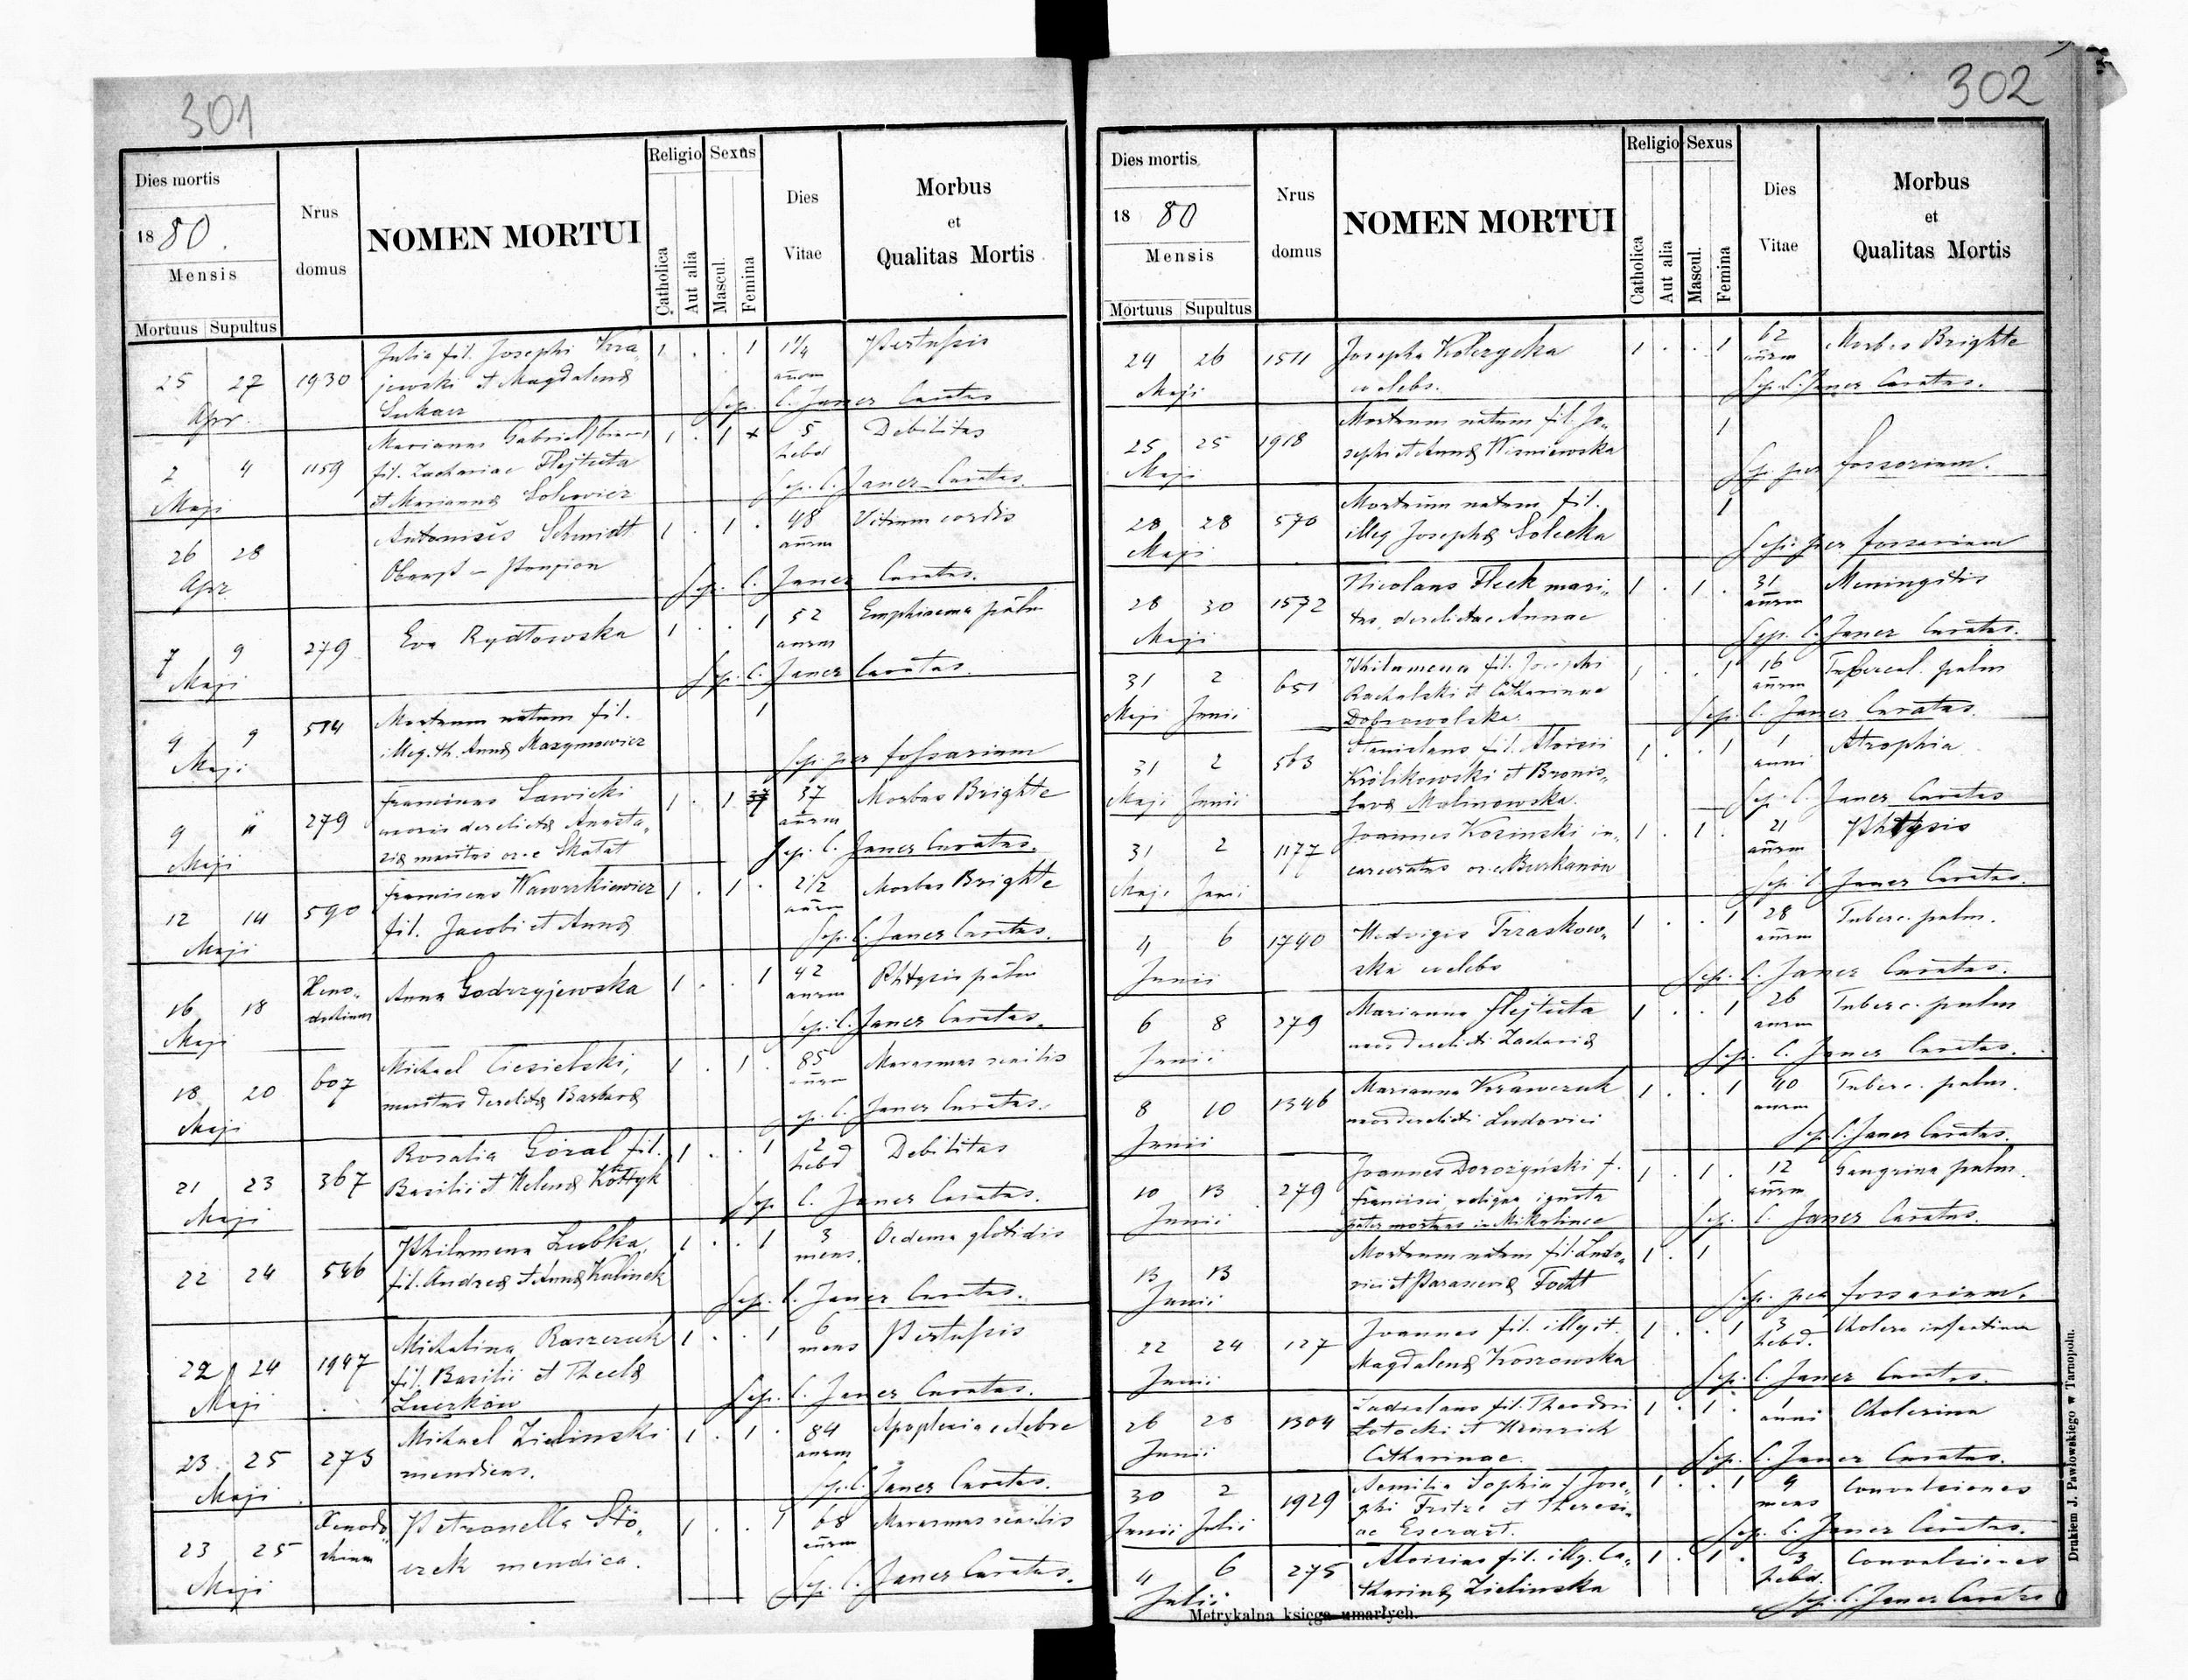 301
Dies mortis
1880.
Mensis
Mortuus Supultus
Nrus
domus
NOMEN MORTUI
Religio
Catholica
Aut alia
Sexus
Mascul.
Femina
Dies
Vitae
Morbus
et
Qualitas Mortis
25 27 1930 Julia fil. Josephi Kra 1 . . 1 1 1/4 Pertussis
Apr. jewski et Magdalenæ annor
Sep. C. Janer Curatus
2 4 1159 fil. Zachariae Flejtuta 1 . 1 5 Debilitas
Maji et Mariannæ hebd
Sep. C. Janer Curatus.
26 28 Antonius Schmidt 1 . 1 . 48 Vitium cordis
Apr annor
Sep. C. Janer Curatus.
7 9 279 Eva Rydłowska 1 . . 1 52 Emphisema pulm
Maji annor
Sep. C. Janer Curatus.
9 9 514 Mortuum natum fil. 1
Maji illeg. Annæ Maxymowicz
Sep per fossarium
9 11 279 Franciscus Sawicki 1 . 1 37 Morbus Brighte
Maji derelictæ Anasta annor
maritus Skałat
Sep. C. Janer Curatus.
12 14 590 Franciscus Wawrzkiewicz 1 . 1 . 2 1/2 Morbus Brighte
Maji fil. Jacobi et Annæ annor
Sep. C. Janer Curatus.
16 18 Xeno- Anna Godrzyjewska 1 . . 1 42 Phtysis pulm
Maji dochium annor
Sep. C. Janer Curatus.
18 20 607 Michael Ciesielski, 1 . 1 . 85 Marasmus senilis
Maji maritus derelictæ Barbaræ annor
Sep. C. Janer Curatus.
21 23 367 Rosalia Góral fil. 1 . . 1 2 Debilitas
Maji Basilii et Helenæ Kołtyk hebd
Sep C. Janer Curatus.
22 24 546 Philomena Lubka, 1 . . 1 3 Oedema glotidis
fil. Andreæ et Annæ Kalinek mens.
Sep. C. Janer Curatus.
22 24 1947 Michalina Raszczuk 1 . . 1 6 Pertussis
Maji fil. Basilii et Theclæ mens
Luczków
Sep. C. Janer Curatus.
23 25 273 Michael Zielinski 1 . 1 . 84 Apoplexia celebre
Maji mendicus. annor
Sep. C. Janer Curatus.
23 25 Xenodo Petronella Sto- 1 . . 1 68 Marasmus senilis
Maji chium czek mendica. annor
Sep. C. Janer Curatus.
302
Dies mortis
1880
Mensis
Mortuus Supultus
Nrus
domus
NOMEN MORTUI
Religio
Catholica
Aut alia
Sexus
Mascul.
Femina
Dies
Vitae
Morbus
et
Qualitas Mortis
24 26 1511 Josepha Kolczycka 1 . . 1 62 Morbus Brighte
Maji coelebs. annor
Sep. C. Janer Curatus.
25 25 1918 Mortuum natum fil. Jo- 1
Maji sephi et Annæ Wisniewska
Sep. per fossarium.
28 28 570 Mortuum natum fil. 1
Maji illeg Josephæ Solecka
Sep. per fossarium
28 30 1572 Nicolaus Fleck mari- 1 . 1 . 31 Meningitis
Maji tus derelictae Annae annor
Sep. C. Janer Curatus.
31 2 651 Philomena fil. Josephi 1 . . 1 16 Tubercul. pulm
Maji Junii Rachalski et Catharinae annor
Dobrowolska.
Sep. C. Janer Curatus.
31 2 563 Stanislaus, fil. Aloisii 1 . . 1 1 Atrophia
Maji Junii Królikowski et Bronis- anni
lavæ Molinowska.
Sep. C. Janer Curatus
31 2 1177 Joannes Kozinski in- 1 . 1 . 21 Phtysis
Maji Junii carceratus Burkanow annor
Sep. C. Janer Curatus.
4 6 1740 Hedvigis Trzaskow- 1 . . 1 28 Tuberc. pulm.
Junii ska coelebs annor
Sep. C. Janer Curatus.
6 8 279 Marianna Flejtuta 1 . . 1 26 Tuberc. pulm
Junii uxor derelicti Zachariæ annor
Sep. C. Janer Curatus.
8 10 1346 Marianna Krawczuk 1 . . 1 40 Tuberc. pulm.
Junii uxor derelicti Ludovici annor
Sep. C. Janer Curatus.
10 13 279 Joannes Dorożyński f. 1 . 1 . 12 Gangrina pulm.
Junii Francisci, religio ignota annor
pater mortuus in Mikulince
Sep. C. Janer Curatus.
13 13 Mortuum natum fil. Ludo- 1 . 1
Junii vici et Parascevæ Focht
Sep. per fossarium.
22 24 127 Joannes fil. illegit. 1 . . 1 3 Cholera infantium
Junii Magdalenæ Koszowska hebd.
Sep. C. Janer Curatus.
26 28 1304 Ladislaus fil. Theodori 1 . 1 . 1 Cholerina
Junii Łotocki et Heinrich anni
Catharinae.
Sep. C. Janer Curatus.
30 2 1929 Aemilia Sophia f. Jose- 1 . . 1 9 Convulsiones
Junii Julii phi Fritze et Theresi- mens
ae
Sep. C. Janer Curatus.
4 6 275 Aloisius fil. illeg. Ca- 1 . 1 . 3 Convulsiones
Julii tharinæ Zielinska hebd.
Sep. C. Janer Curatus
Metrykalna księga umarłych.
Drukiem J. Pawłowskiego w Tarnopolu.